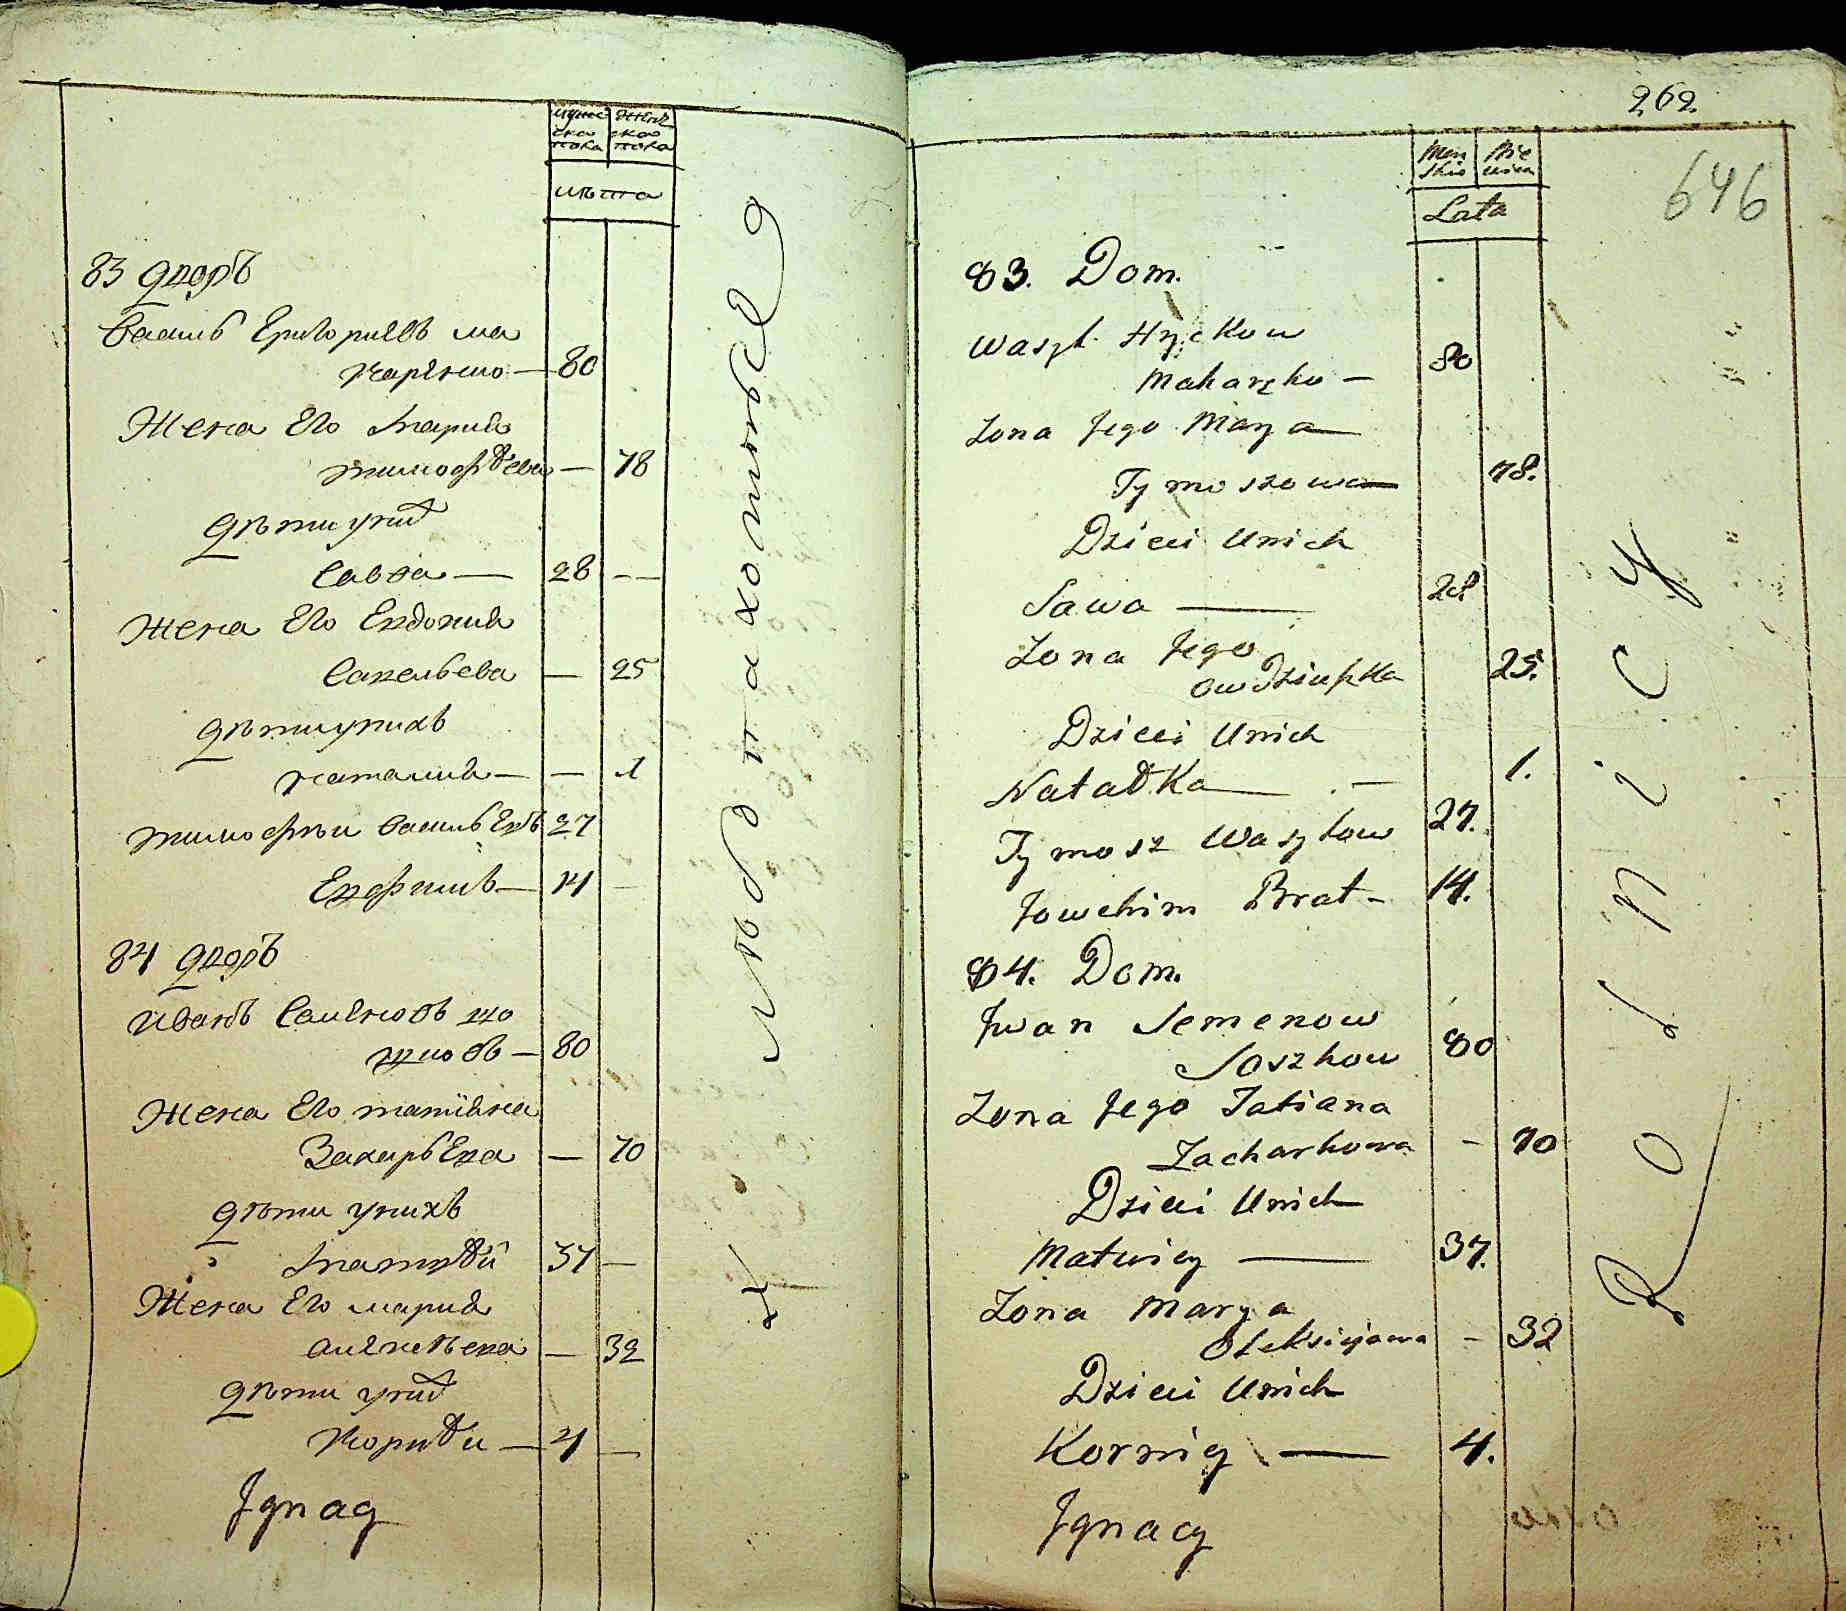 мужес
ска
пола
женс
ская
пола
лѣта
83 дворъ
Василь Григориевъ ма
каренко — 80
Жена Его Мария
тимофѣева — 78
дѣти у них
Савва — 28 — —
Жена Его Евдокия
Савельева — 25
дѣти у нихъ
наталия — — 1
тимофѣи васильевъ 27
Евфим — 14 —
84 дворъ
Иванъ Семеновъ
— 80
Жена Его татияна
Захарьева — 70
дѣти у нихъ
Матвѣй 37 —
Жена Его мария
алексѣева — 32
дѣти у них
Корнѣи — 4 —
Jgnacy
хлѣбопахотные
262
646
Men
skie
Nie
wiea
Lata
83. Dom.
Wasyl Hryckow
Makaręko — 80
Zona Jego Marya
Tymoszowa 78.
Dzieci Unich
Sawa — 28
Zona Jego
Owdziuszka 25.
Dzieci Unich
Natałka — 1.
Tymosz Wasylow 27.
Jowchim Brat - 14.
84. Dom.
Jwan Semenow
Soszkow 80
Zona Jego Tatiana
Zacharkowa - 70
Dzieci Unich
Matwiey — 37.
Zona Marya
Oleksiejowa - 32
Dzieci Unich
Korniy — 4.
Jgnacy
Rolnicy